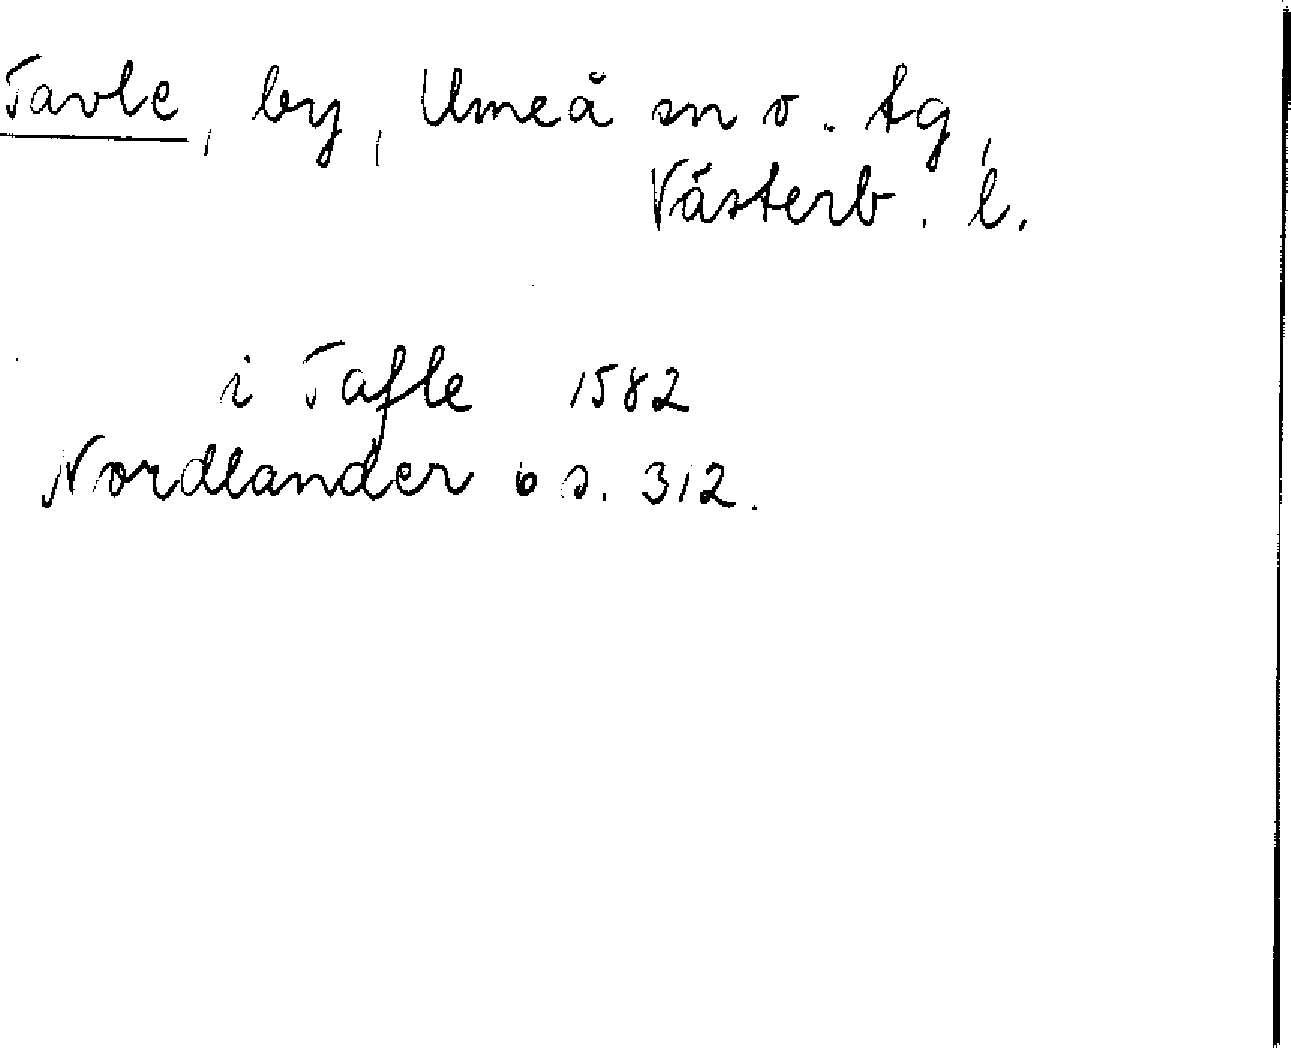 Tavle, by, Umeå sn o. tg,
Västerb. l.
i Tafle 1582
Nordlander 6 s. 312.